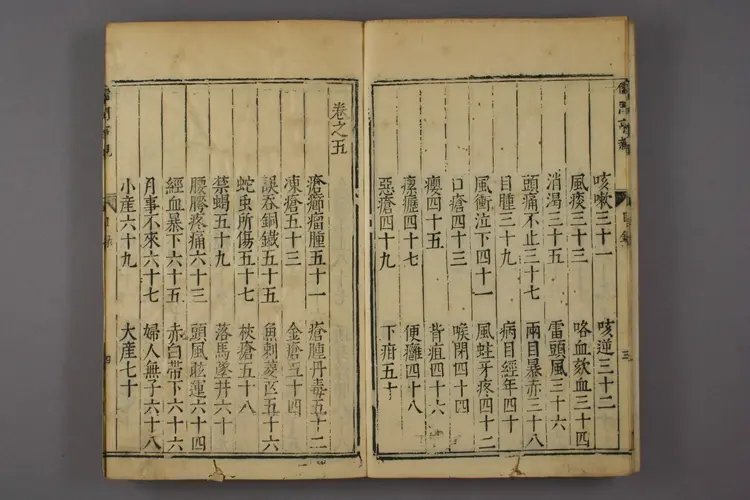 儒門事親
目錄
三
咳嗽三十一 咳逆三十二
風痰三十三 咯血欬血三十四
消渴三十五 雷頭風三十六
頭痛不止三十七 兩目暴赤三十八
目腫三十九 病目經年四十
風衝泣下四十一 風蛀牙疼四十二
口瘡四十三 喉閉四十四
癭四十五 背疽四十六
瘰癧四十七 便癰四十八
惡瘡四十九 下疳五十
卷之五
瘡癤瘤腫五十一 瘡腫丹毒五十二
凍瘡五十三 金瘡五十四
誤吞銅鐵五十五 魚刺麥芒五十六
蛇虫所傷五十七 杖瘡五十八
禁蝎五十九 落馬墜井六十
腰胯疼痛六十三 頭風眩運六十四
經血暴下六十五 赤白帶下六十六
月事不來六十七 婦人無子六十八
小産六十九 大産七十
儒門事親
目錄
四